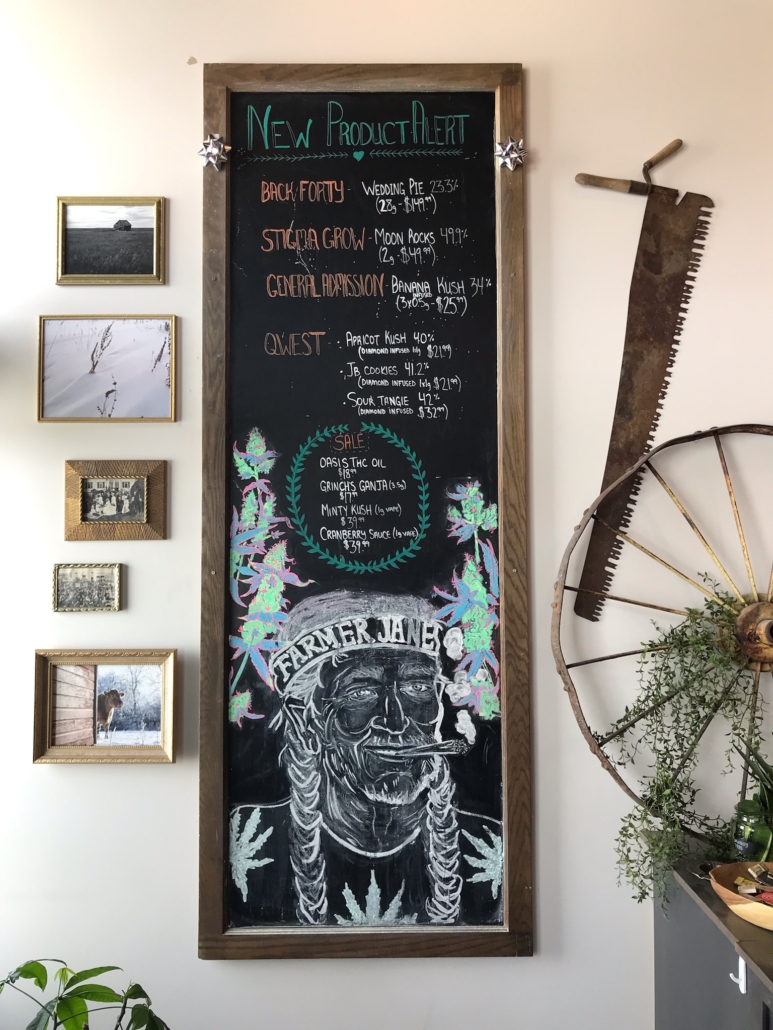 NEW PRODUCT ALERT
BACK FORTY - WEDDING PIE 23.3%
(28g - $149.99)
STIGMA GROW - MOON ROCKS 49.9%
(2g - $49.99)
GENERAL ADMISSION - BANANA KUSH 34%
INFUSED
(3x0.5g - $25.99)
QWEST
· APRICOT KUSH 40%
(DIAMOND INFUSED 1x1g $21.99)
· JB COOKIES 41.2%
(DIAMOND INFUSED 1x1g $21.99)
· SOUR TANGIE 42%
(DIAMOND INFUSED $32.99)
SALE:
OASIS THC OIL
$18.99
GRINCHS GANJA (3.5g)
$17.99
MINTY KUSH (1g VAPE)
$39.99
CRANBERRY SAUCE (1g VAPE)
$39.99
FARMER JANE